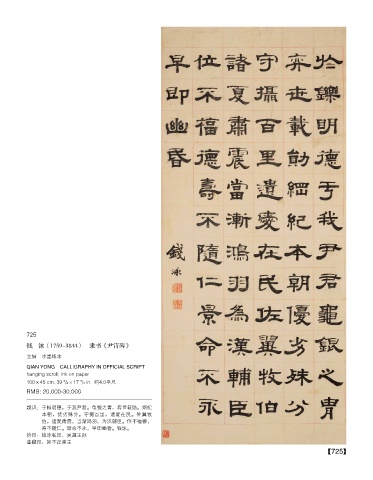 於鑠明德于我尹君龜銀之胄
弈世載勛綱紀本朝優劣殊分
守攝百里遺愛在民佐翼牧伯
諸夏肅震當漸鴻羽為漢輔臣
位不福德壽不隨仁景命不永
早即幽昏
錢泳
725
钱 泳（1759-1844） 隶书《尹宙碑》
立轴 水墨纸本
QIAN YONG CALLIGRAPHY IN OFFICIAL SCRIPT
hanging scroll, ink on paper
RMB: 20,000-30,000
【725】